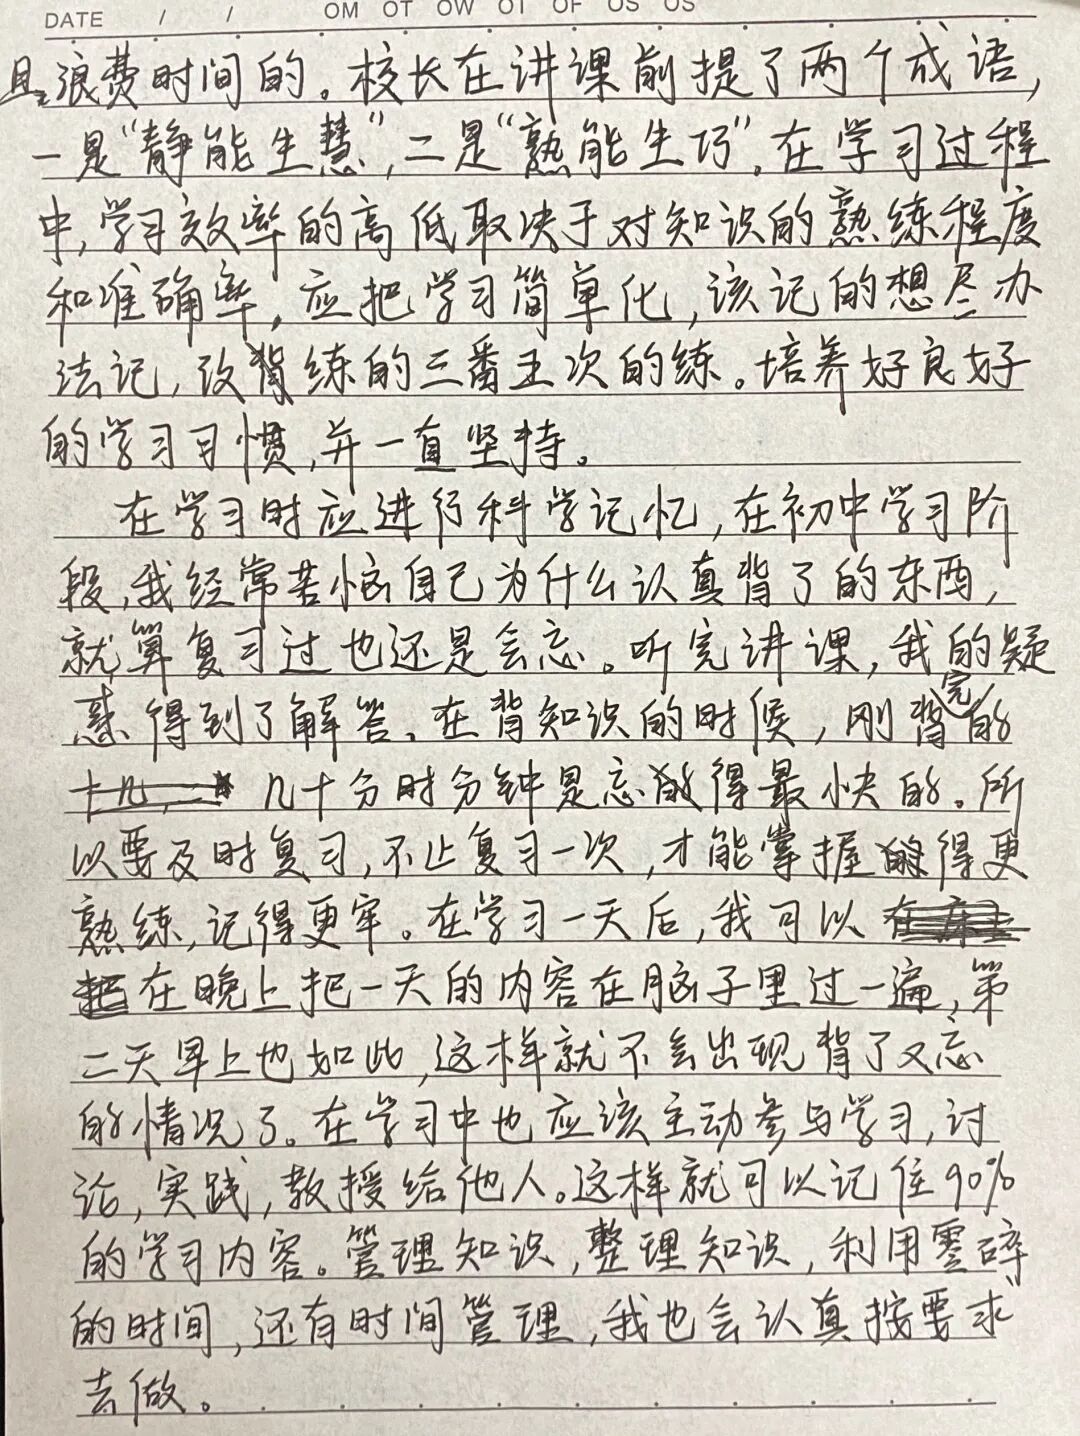 DATE / / OM OT OW OT OF OS OS
且浪费时间的。校长在讲课前提了两个成语,
一是“静能生慧”,二是“熟能生巧”。在学习过程
中,学习效率的高低取决于对知识的熟练程度
和准确率,应把学习简单化,该记的想尽办
法记,改背练的三番五次的练。培养好良好
的学习习惯,并一直坚持。
在学习时应进行科学记忆,在初中学习阶
段,我经常苦恼自己为什么认真背了的东西,
就算复习过也还是会忘。听完讲课,我的疑
惑得到了解答。在背知识的时候,刚背完的
几十分时分钟是忘得最快的。所
以要及时复习,不止复习一次,才能掌握得更
熟练,记得更牢。在学习一天后,我可以
在晚上把一天的内容在脑子里过一遍,第
二天早上也如此,这样就不会出现背了又忘
的情况了。在学习中也应该主动参与学习,讨
论,实践,教授给他人。这样就可以记住90%
的学习内容。管理知识,整理知识,利用零碎
的时间,还有时间管理,我也会认真按要求
去做。